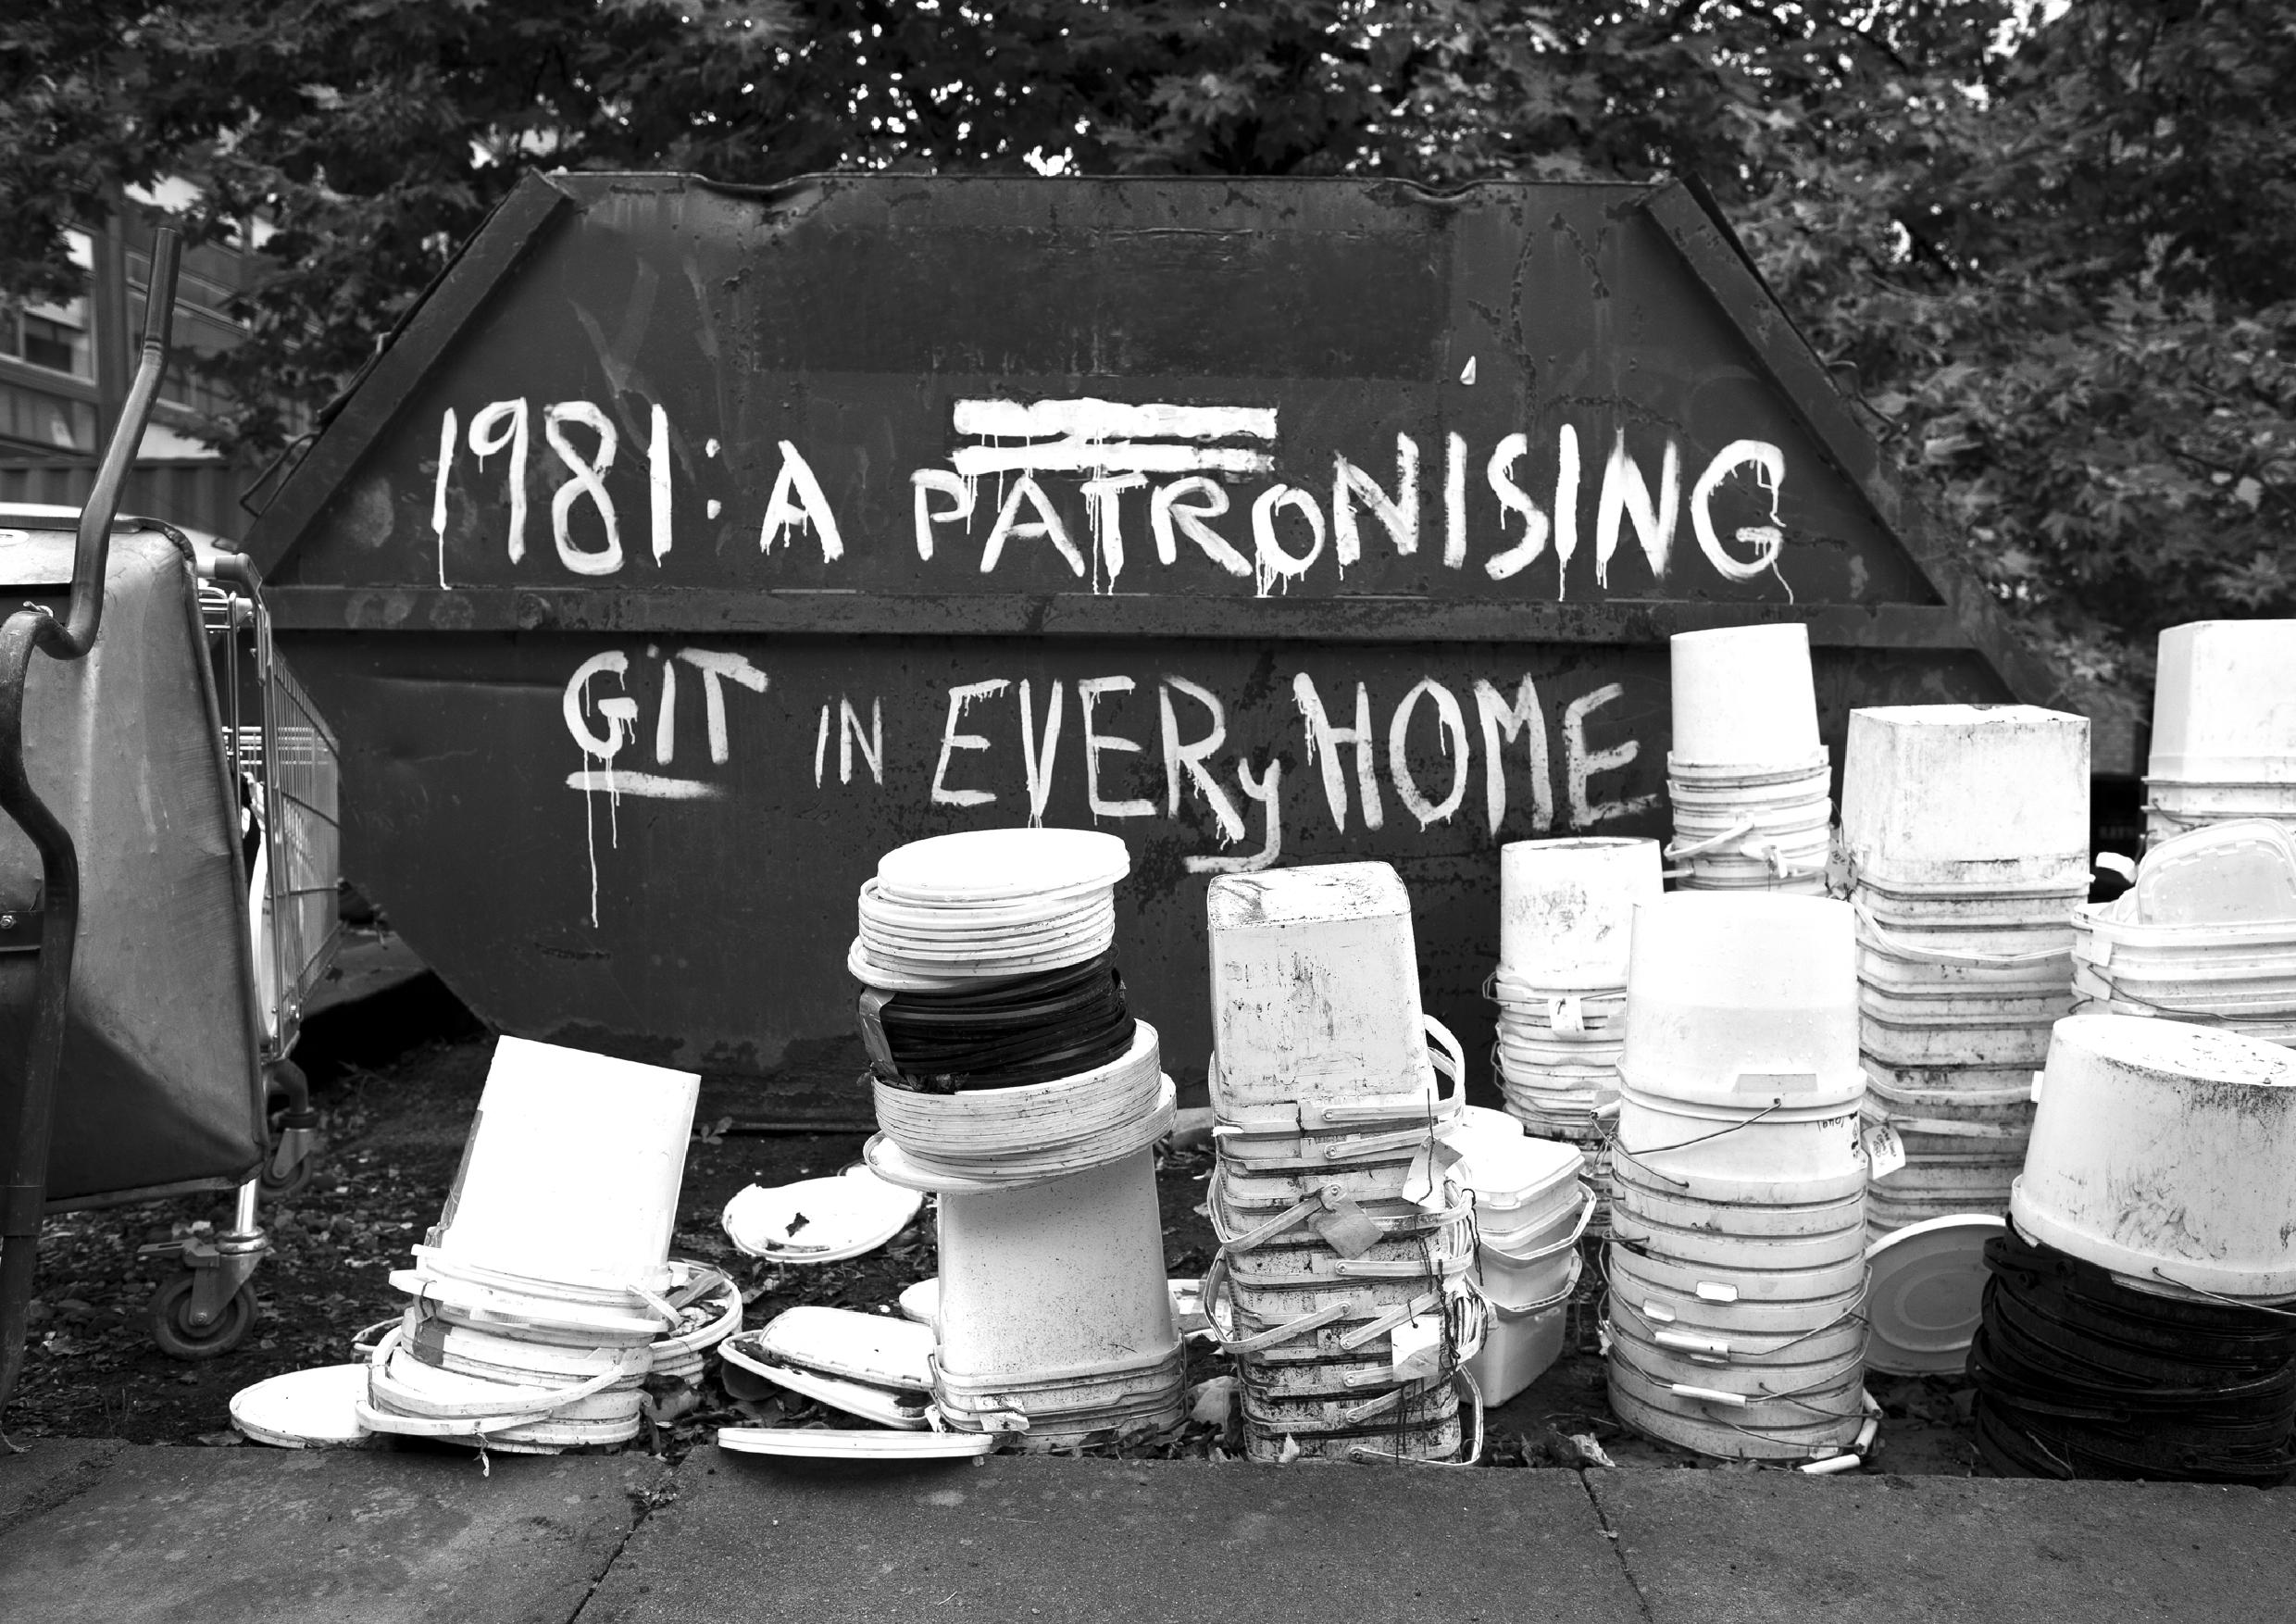 1981: A PATRONISING
GIT IN EVERy HOME